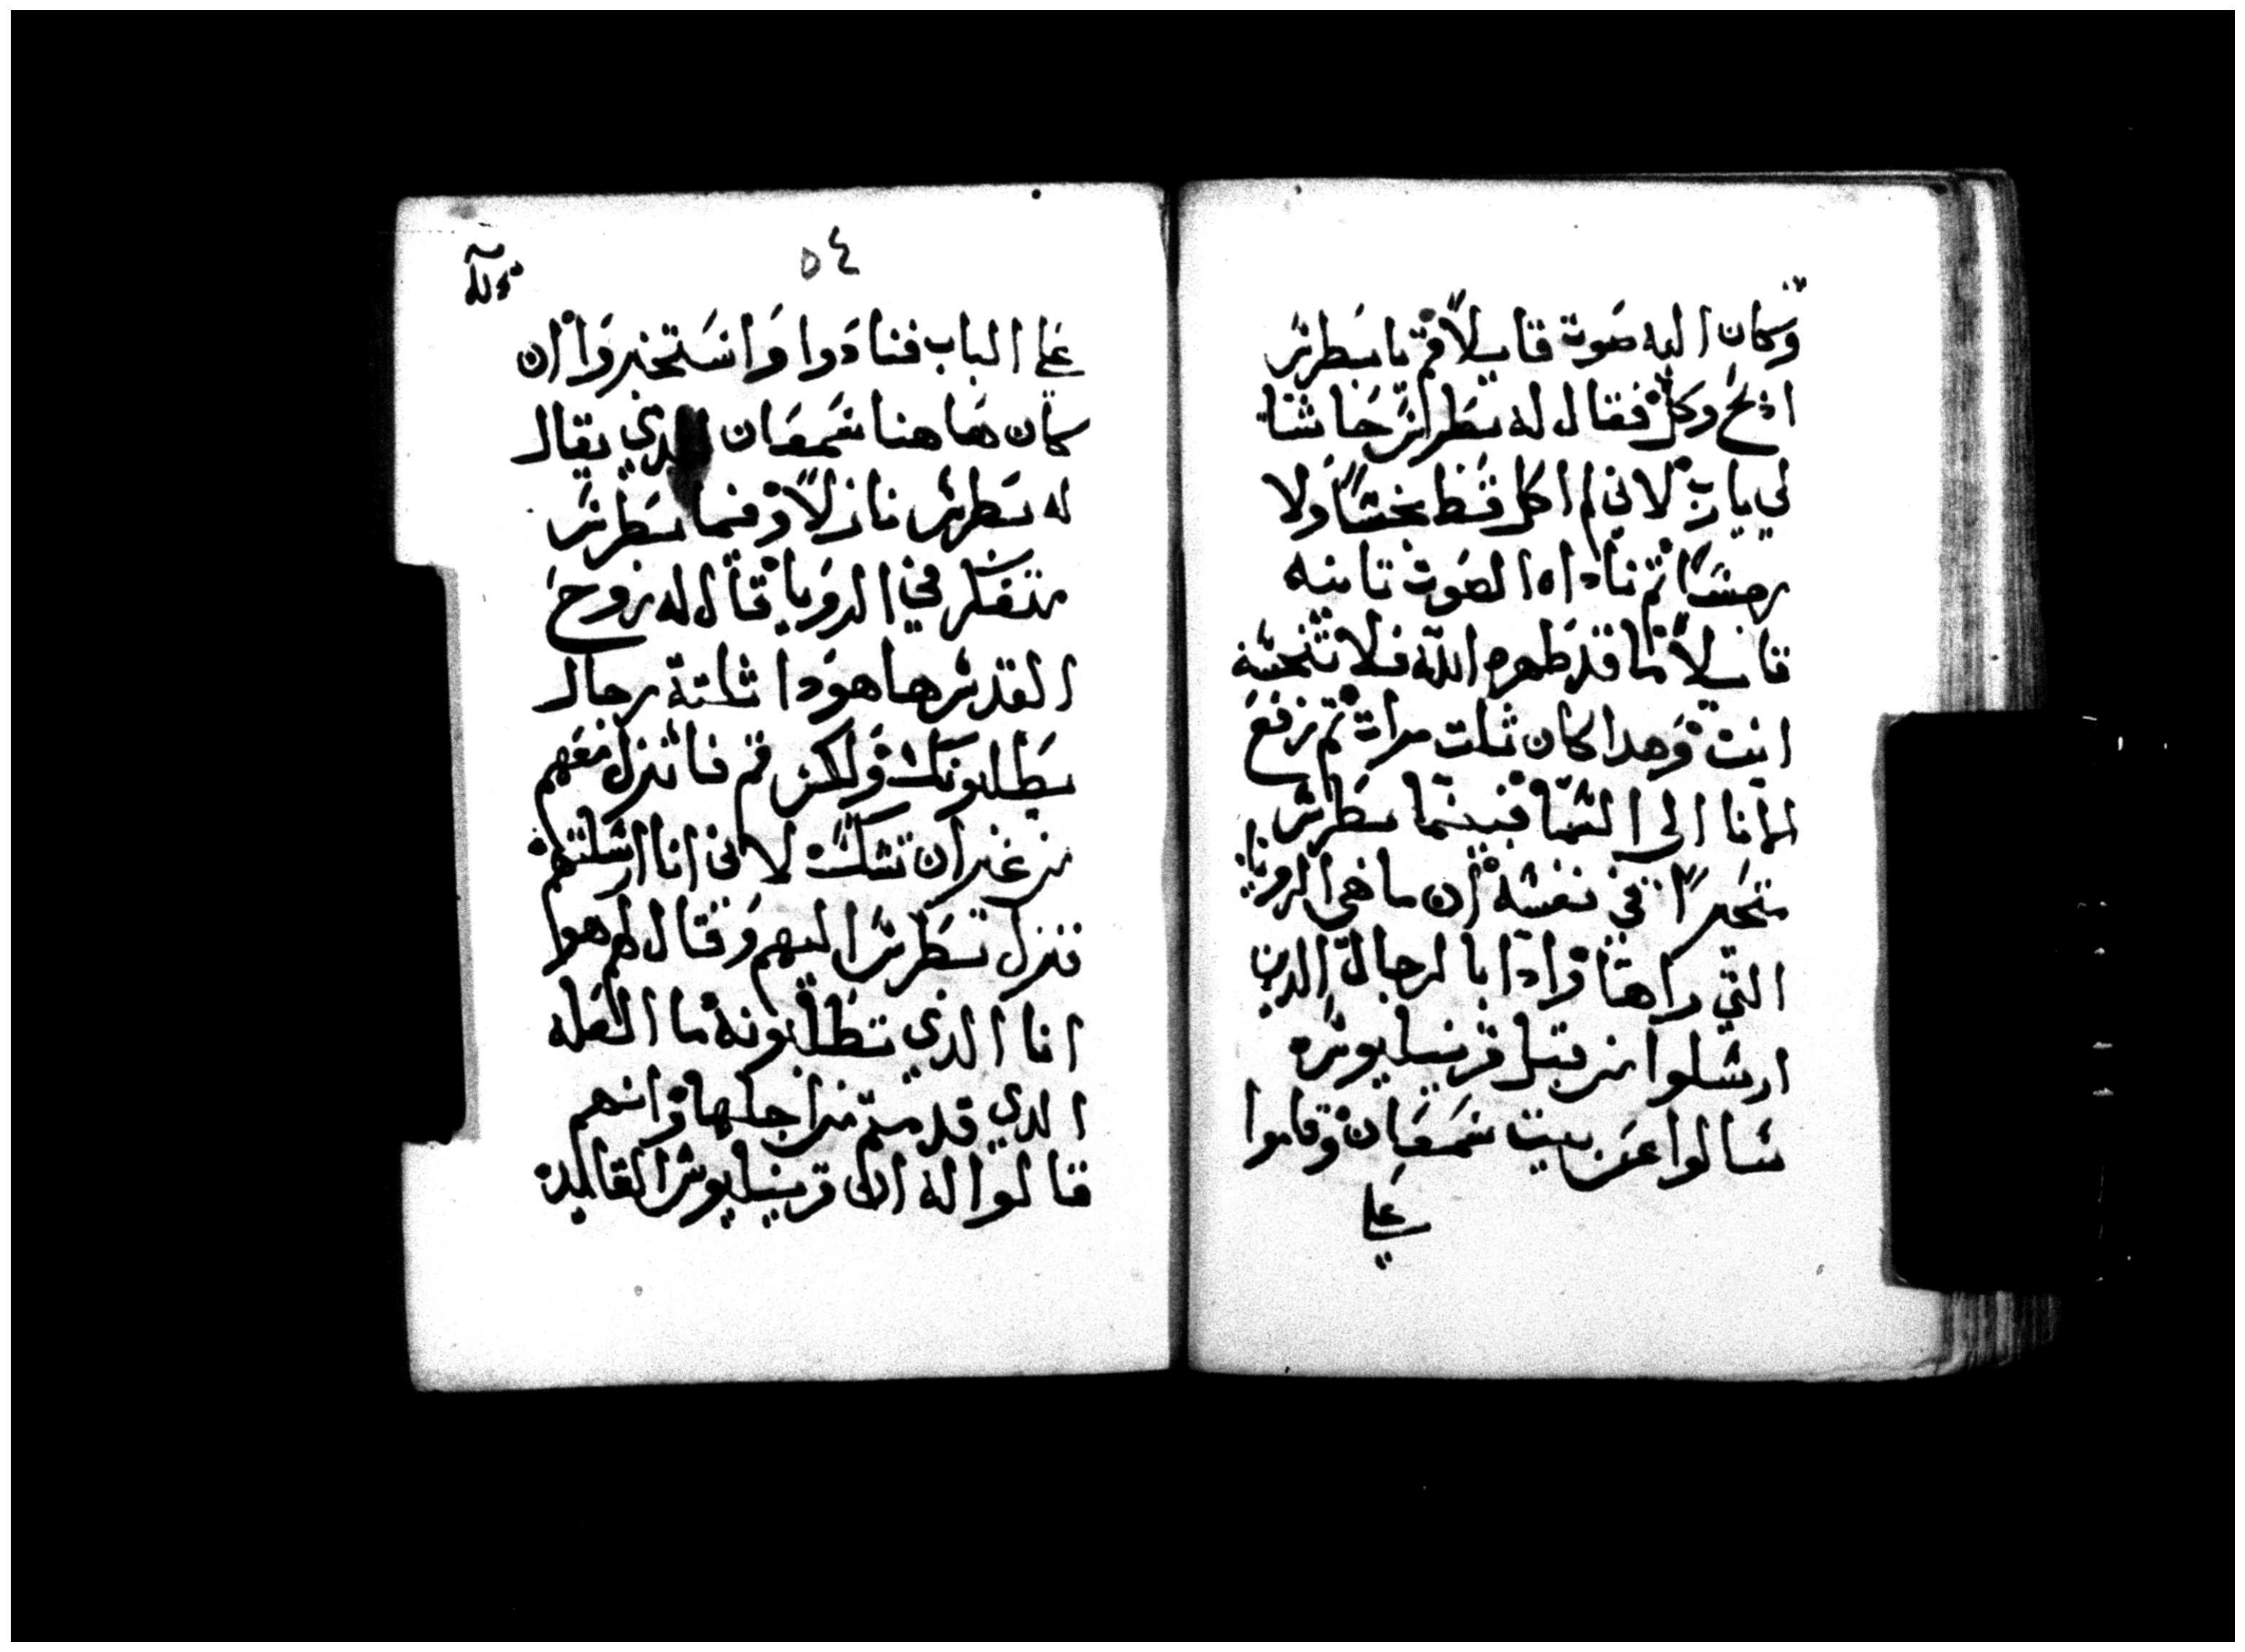 وكان اليه صوت قايلاً قم يا بطرس
ادبح وكل فقال له بطرس حاشا
لي يا رب لاني لم اكل قط نجسًا ولا
رجسًا ثم ناداه الصوت تانيه
قايلاً ما قد طهره الله فلا تنجسه
انت وهدا كان تلت مرات تم رفع
المانا الى السما فبينما بطرس
متحيرًا في نفسه ان ما هي الرويا
التي راها وادا بالرجال الدين
ارسلوا من قبل قرنيليوس
سالوا عن بيت سمعان وقاموا
علي
٥٤
علي الباب فنادوا واستخبروا ان
كان هاهنا سمعان الدي يقال
له بطرس نازلاً وفيما بطرس
متفكر في الرويا قال له روح
القدس ها هودا تلتة رجال
يطلبونك ولكن قم فانزل معهم
من غير ان تشك لاني انا ارسلتهم
فنزل بطرس اليهم وقال لهم هوا
انا الدي تطلبونه ما العله
الدي قدمتم من اجلها وانهم
قالوا له ان قرنيليوس القايد